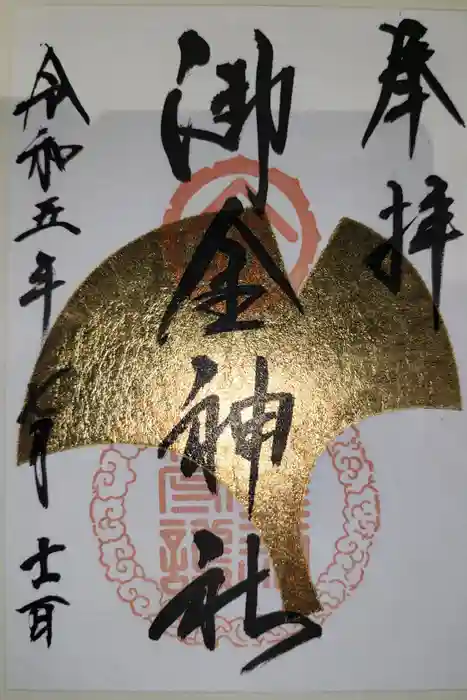 奉拝
御金神社
令和五年 月 日